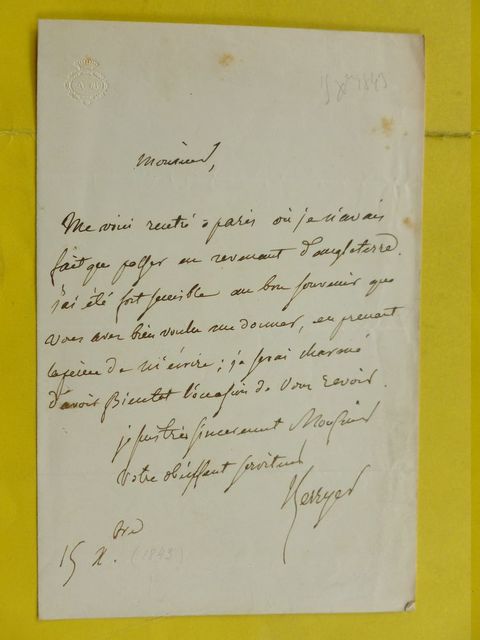 15 Xbre 1843
Monsieur,
Me voici rentré à paris où je n'avais
fait que passer en revenant d'angleterre.
j'ai été fort sensible au bon souvenir que
vous avez bien voulu me donner, en prenant
la peine de m'écrire; je serai charmé
d'avoir Bientot l'occasion de vous revoir.
je suis très sincerement Monsieur
votre obéissant serviteur
Berryer
15 Xbre (1843)